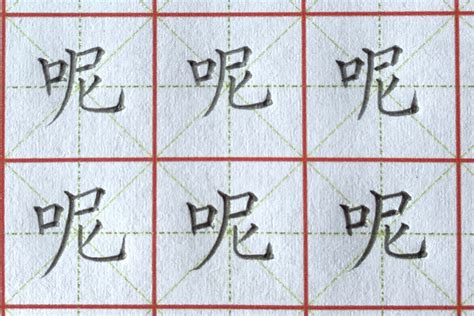 呢呢呢
呢呢呢